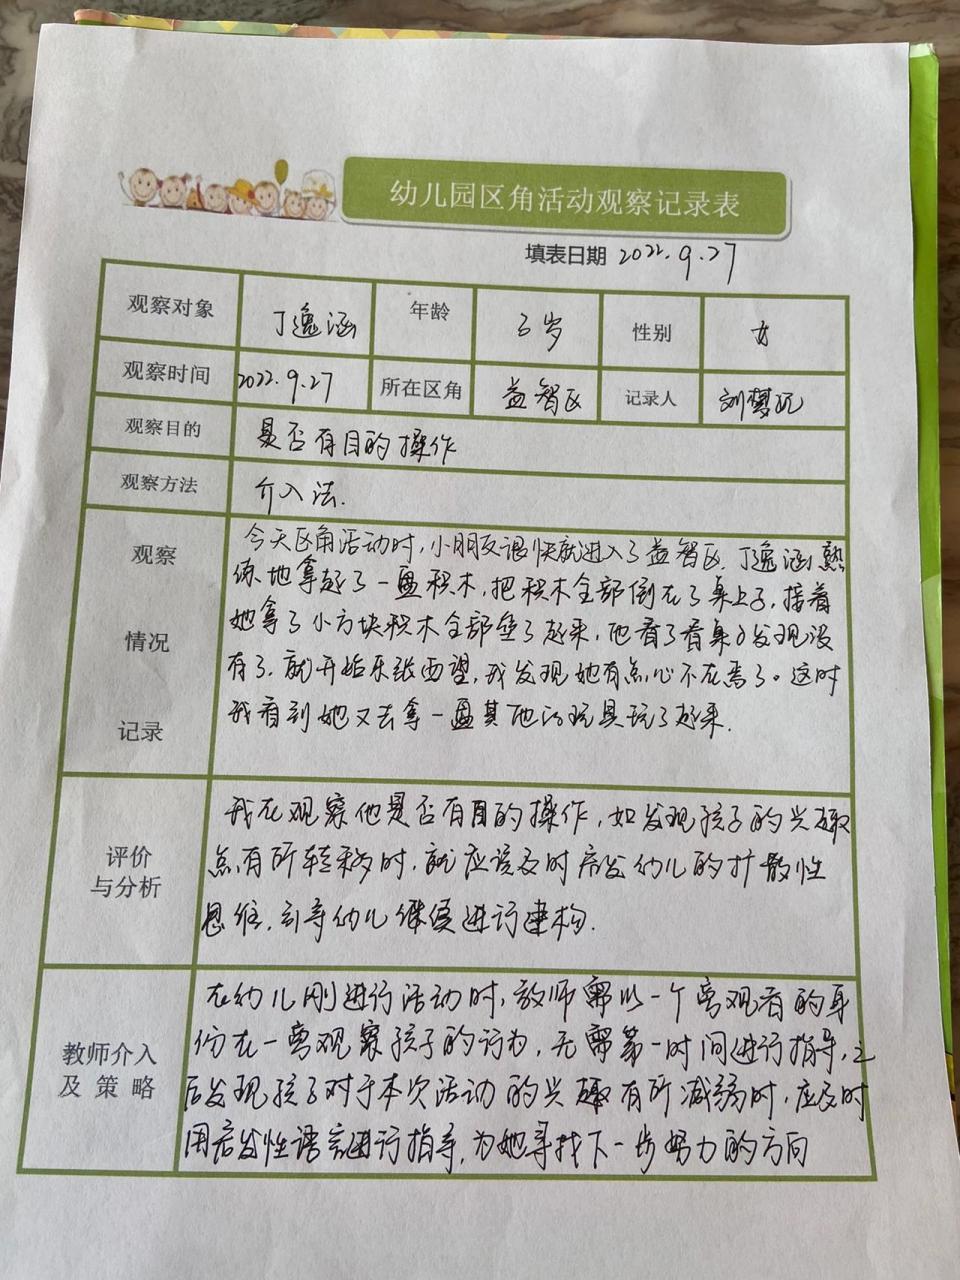 幼儿园区角活动观察记录表
填表日期 2022.9.27
观察对象 丁逸涵 年龄 3岁 性别 女
观察时间 2022.9.27 所在区角 益智区 记录人 刘梦
观察目的 是否有目的操作
观察方法 介入法.
观察情况记录
今天区角活动时,小朋友很快就进入了益智区.丁逸涵熟
练地拿起了一盘积木,把积木全部倒在了桌上子,接着
她拿了小方块积木全部垒了起来,他看了看桌子发现没
有了.就开始东张西望,我发现她有点心不在焉了。这时
我看到她又去拿一盘其他的玩具玩了起来.
评价与分析
我在观察他是否有目的操作,如发现孩子的兴趣
点有所转移时,就应该及时启发幼儿的扩散性
思维,引导幼儿继续进行建构.
教师介入及策略
在幼儿刚进行活动时,教师需以一个旁观者的身
份在一旁观察孩子的行为,无需第一时间进行指导,之
后发现孩子对于本次活动的兴趣有所减弱时,应及时
用启发性语言进行指导,为她寻找下一步努力的方向